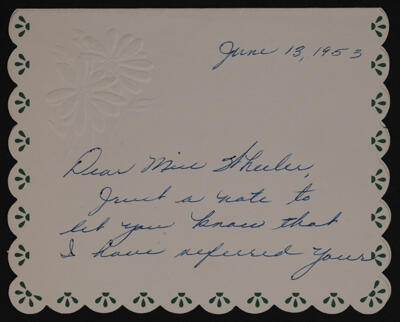 June 13, 1953
Dear Miss Wheeler,
Just a note to
let you know that
I have referred your